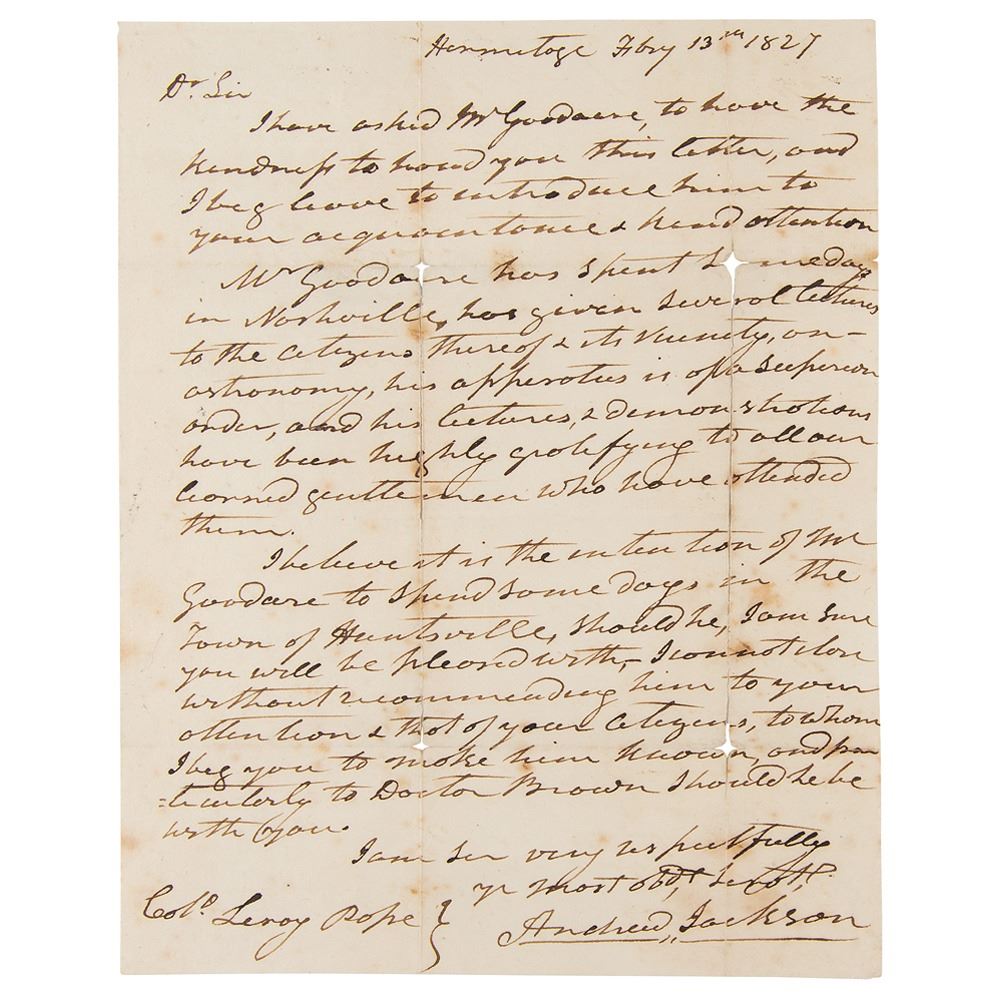 Hermitage Fbry 13th 1827
Dr. Sir
I have asked Mr Goodacre, to have the
kindness to hand you this letter, and
I beg leave to introduce him to
your acquaintance & kind attention
Mr Goodacre has spent some days
in Nashville, has given several lectures
to the citizens thereof & its vicinity, on
astronomy, his apparatus is of a superior
order, and his lectures, & demonstrations
have been highly gratifying to all our
learned gentlemen who have attended
them.
I believe it is the intention of Mr
Goodacre to spend some days in the
Town of Huntsville, should he, I am sure
you will be pleased with, I cannot close
without recommending him to your
attention & that of your citizens, to whom
I beg you to make him known, and par
=ticularly to Doctor Brown should he be
with you.
I am Sir very respectfully
yr most obdt. servt.
Colo Leroy Pope
Andrew Jackson